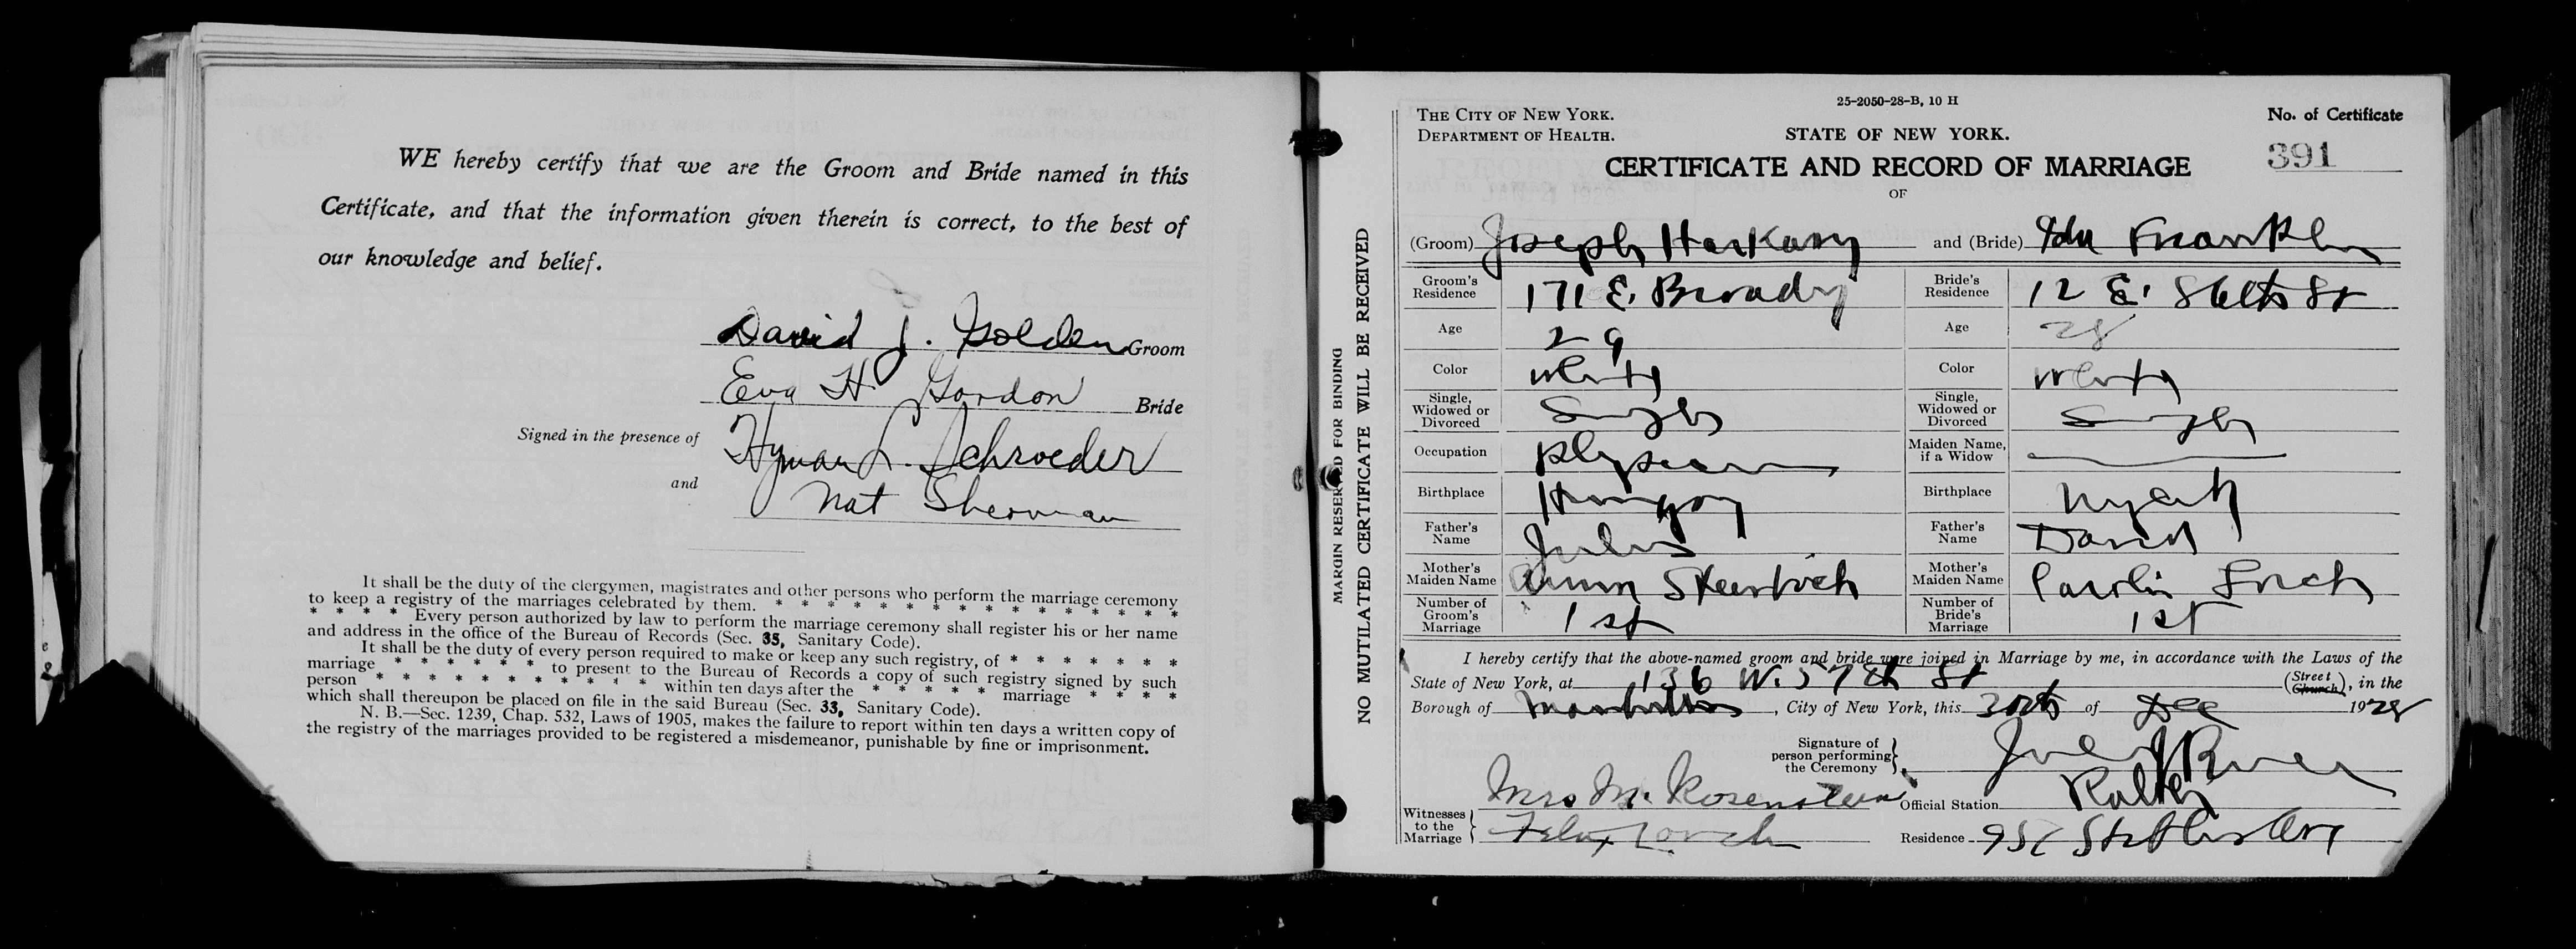 WE hereby certify that we are the Groom and Bride named in this
Certificate, and that the information given therein is correct, to the best of
our knowledge and belief.
David J. Golden Groom
Eva H Gordon Bride
Signed in the presence of Hyman L. Schroeder
and Nat Sherman
It shall be the duty of the clergymen, magistrates and other persons who perform the marriage ceremony
to keep a registry of the marriages celebrated by them. * * * * * * * * * * * * * * *
* * * * Every person authorized by law to perform the marriage ceremony shall register his or her name
and address in the office of the Bureau of Records (Sec. 35, Sanitary Code).
It shall be the duty of every person required to make or keep any such registry, of * * * * * * *
marriage * * * * * * to present to the Bureau of Records a copy of such registry signed by such
person * * * * * * * * * * * within ten days after the * * * * * marriage * * * *
which shall thereupon be placed on file in the said Bureau (Sec. 33, Sanitary Code).
N. B.—Sec. 1239, Chap. 532, Laws of 1905, makes the failure to report within ten days a written copy of
the registry of the marriages provided to be registered a misdemeanor, punishable by fine or imprisonment.
MARGIN RESERVED FOR BINDING
NO MUTILATED CERTIFICATE WILL BE RECEIVED
25-2050-28-B, 10 H
THE CITY OF NEW YORK.
DEPARTMENT OF HEALTH.
STATE OF NEW YORK.
No. of Certificate
CERTIFICATE AND RECORD OF MARRIAGE
391
OF
(Groom) Joseph Harkavy and (Bride) Ida Franklin
Groom's Residence 171 E. Broadway Bride's Residence 12 E. 86th St
Age 29 Age 28
Color White Color White
Single, Widowed or Divorced Single Single, Widowed or Divorced Single
Occupation Physician Maiden Name, if a Widow
Birthplace Hungary Birthplace N Y City
Father's Name Julius Father's Name David
Mother's Maiden Name Mother's Maiden Name
Number of Groom's Marriage 1st Number of Bride's Marriage 1st
I hereby certify that the above-named groom and bride were joined in Marriage by me, in accordance with the Laws of the
State of New York, at 136 W. 57th St (Street Church), in the
Borough of Manhattan, City of New York, this 30th of Dec 1928
Signature of person performing the Ceremony
Witnesses to the Marriage Mrs M. Rosenstein Official Station Rabbi
Felix Residence